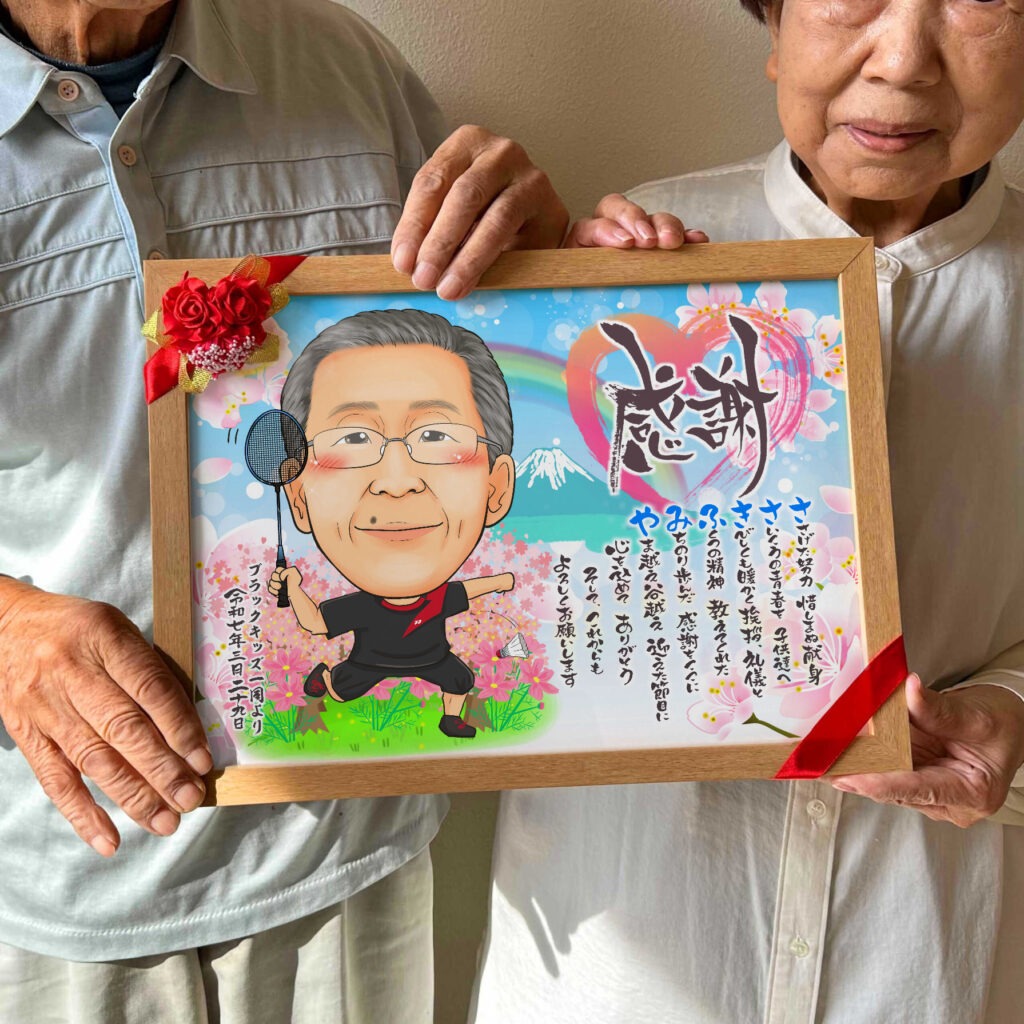 感謝
ささげた努力 惜しまぬ献身
さいこうの青春を 子供達へ
きびしくも暖かく 挨拶 礼儀と
ふくつの精神 教えてくれた
みちのり歩んだ 感謝
やま越え谷越え 迎えた節目に
心を込めて ありがとう
そして これからも
よろしくお願いします
ブラックキッズ一同より
令和七年三月二十九日